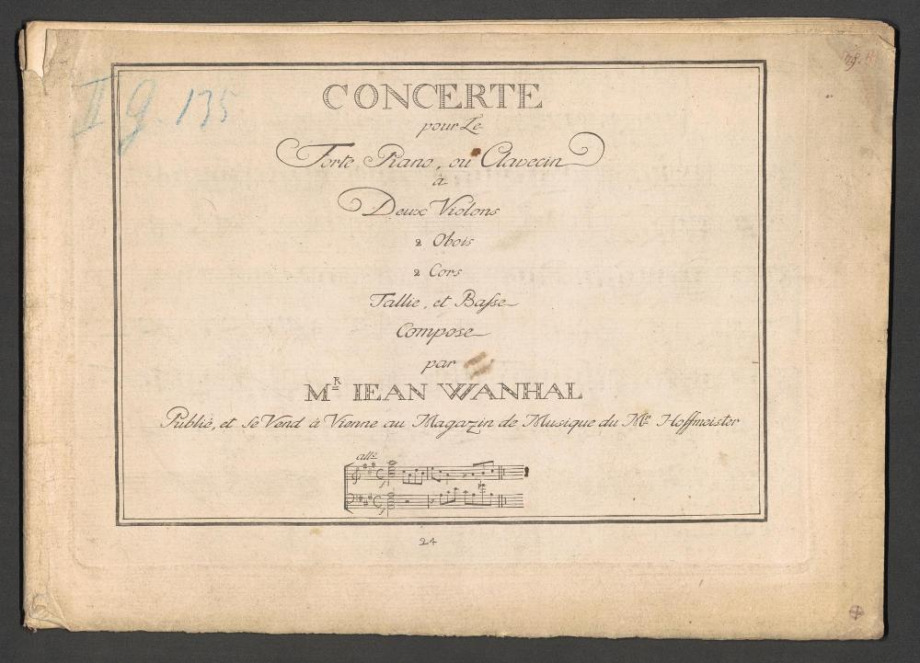 II g. 135
CONCERTE
pour Le
Forte Piano, ou Clavecin
a
Deux Violons
2 Obois
2 Cors
Tallie, et Basse
Compose
par
MR IEAN WANHAL
Publiè, et se Vend à Vienne au Magazin de Musique du Mr Hoffmeister
allo
24